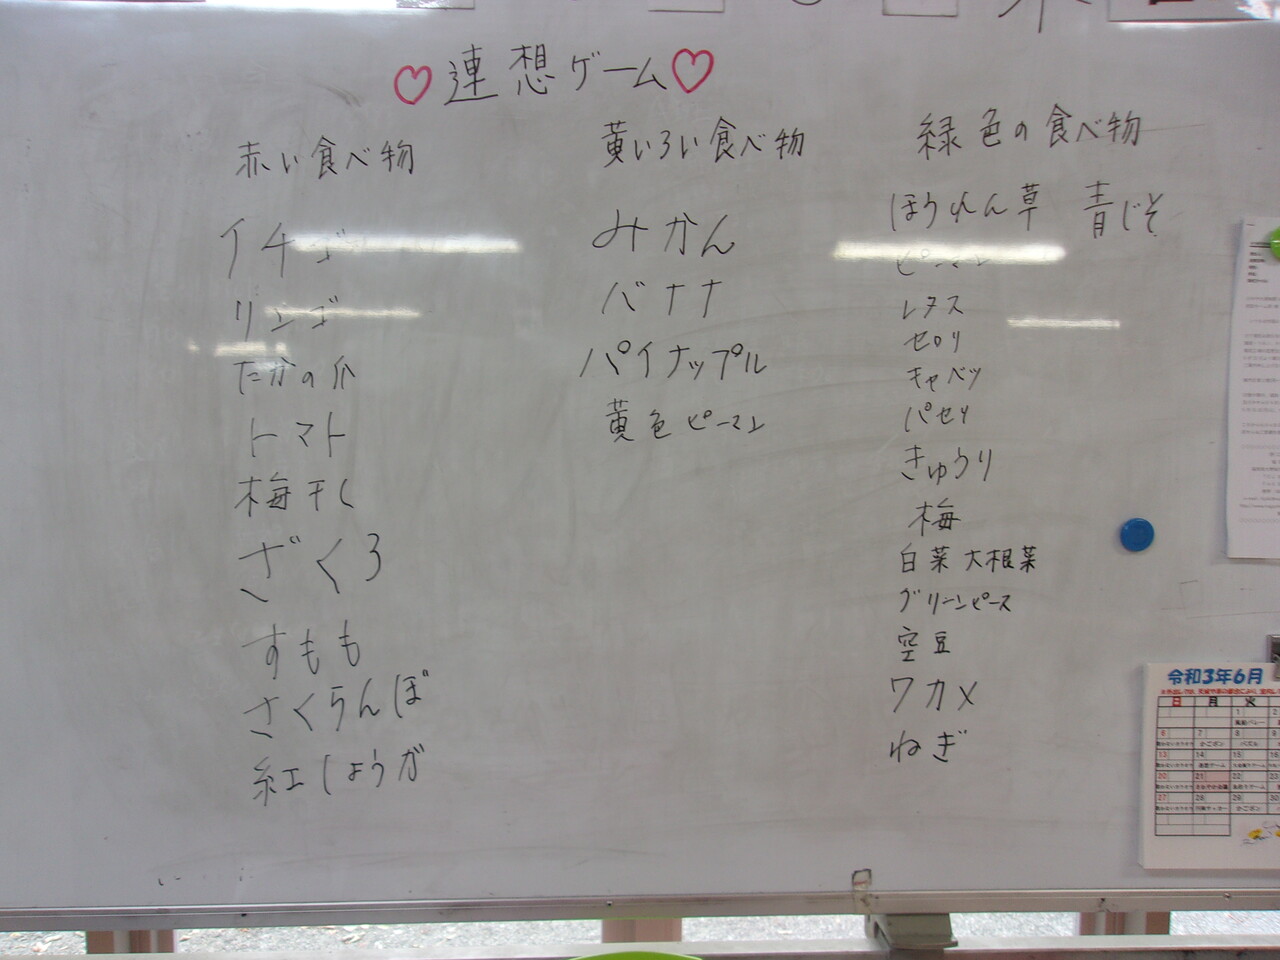 ♡連想ゲーム♡
赤い食べ物
イチゴ
リンゴ
たかの爪
トマト
梅干し
ざくろ
すもも
さくらんぼ
紅しょうが
黄いろい食べ物
みかん
バナナ
パイナップル
黄色ピーマン
緑色の食べ物
ほうれん草 青じそ
ピーマン
レタス
セロリ
キャベツ
パセリ
きゅうり
梅
白菜 大根菜
グリーンピース
空豆
ワカメ
ねぎ
令和3年6月
日 月 火
1 2
6 7 8 9
13 14 15 16
20 21 22 23
27 28 29 30